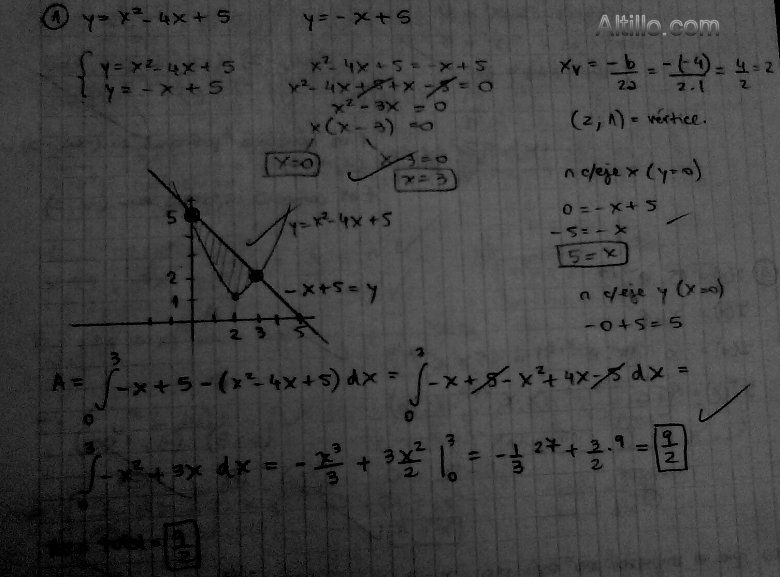 Altillo.com
① y = x² - 4x + 5   y = - x + 5
{ y = x² - 4x + 5
y = - x + 5
x² - 4x + 5 = -x + 5
x² - 4x + 5 + x - 5 = 0
x² - 3x = 0
x (x - 3) = 0
x = 0   x - 3 = 0
x = 3
xv = -b/2a = -(-4)/2.1 = 4/2 = 2
(2, 1) = vértice.
n c/eje x (y=0)
0 = -x + 5
-5 = -x
5 = x
n c/eje y (x=0)
-0 + 5 = 5
5
2
1
2 3 5
y = x² - 4x + 5
-x + 5 = y
A = ∫₀³ -x + 5 - (x² - 4x + 5) dx = ∫₀³ -x + 5 - x² + 4x - 5 dx =
∫₀³ -x² + 3x dx = - x³/3 + 3x²/2 |₀³ = - 1/3 27 + 3/2 . 9 = 9/2
= 9/2